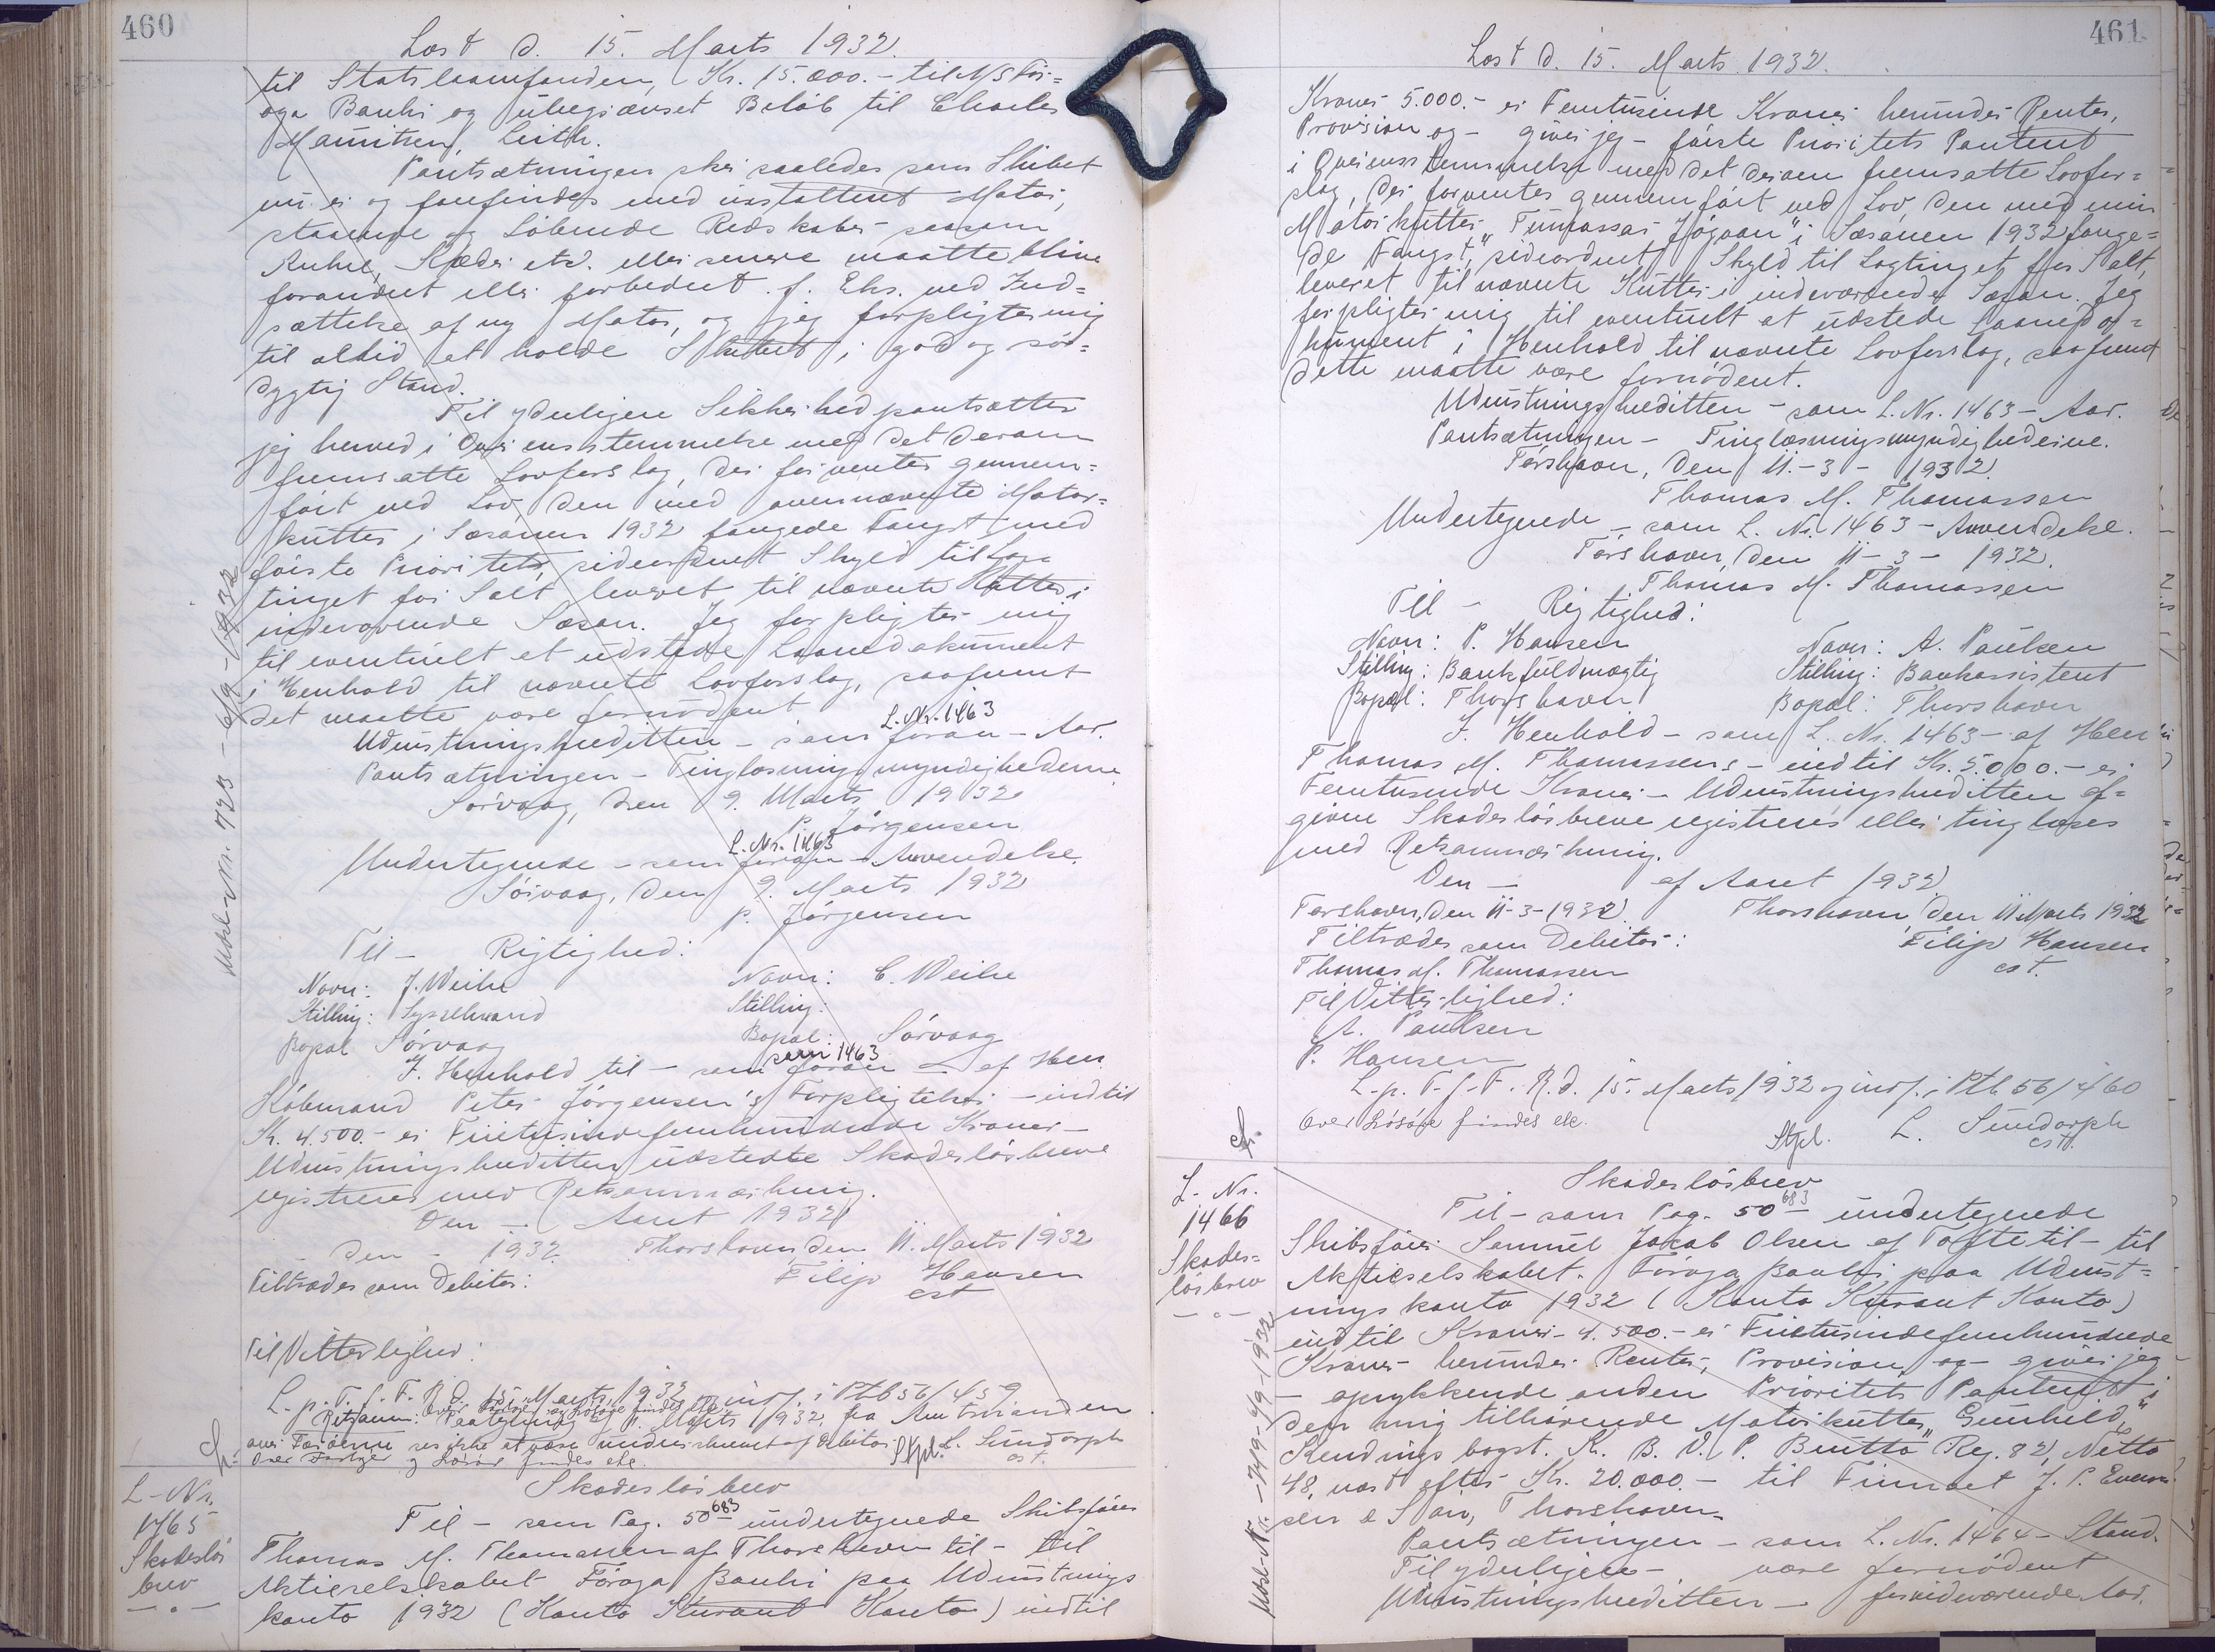 460
Læst d. 15. Marts 1932.
til Statslaanfonden, Kr. 15.000.- til A/S För=
oya Banki og ubegrænset Beløb til Charles
Mauritzen, Leith.
Pantsætningen sker saaledes som Skibet
nu er og forefindes med installeret Motor,
staaende og Løbende Redskaber saasom
Anker, Kæder etc. eller senere maatte blive
forandret eller forbedret f. Eks. ved Ind=
sættelse af ny Motor, og jeg forpligter mig
til altid at holde Skibet i god og sø=
dygtig Stand.
Til yderligere Sikkerhed pantsætter
jeg herved i Overensstemmelse med det derom
fremsatte Lovforslag, der forventes gennem=
ført ved Lov den med ovennævnte Motor=
kutter i Sæsonen 1932 fangede Fangst med
første Prioritet, sideordnet Skyld til Lag=
tinget for Salt leveret til nævnte Kutter i
indeværende Sæson. Jeg forpligter mig
til eventuelt at udstede Laanedokument
i Henhold til nævnte Lovforslag, saafremt
det maatte være fornødent
L. Nr. 1463
Udrustningskreditten - som foran - Aar.
Pantsætningen - Tinglæsningsmyndighederne
Sørvaag, den 9. Marts 1932
P. Jørgensen
L. Nr. 1463
Undertegnede - som foran - Anvendelse.
Sørvaag, den 9. Marts 1932
P. Jørgensen
Til - Rigtighed:
Navn: J. Weihe Navn: C. Weihe
Stilling: Sysselmand Stilling:
Bopæl Sørvaag Bopæl: Sørvaag
som 1463
I. Henhold til - som foran - af Herr
Købmand Peter Jørgensen's Forpligtelser - indtil
Kr. 4.500.- er Firetusindefemhundrede Kroner -
Udrustningskreditten udstedte Skadesløsbreve
registreres med Retsanmærkning.
Den - Aaret 1932
- den - 1932 Thorshavn den 11. Marts 1932
Tiltrædes som Debitor: Filip Hansen
cst
Til Vitterlighed:
L. p. T. f. F. R. d. 15 Marts 1932 og indf. i Ptb 56/459
Retsanm: Paategning af Marts 1932 fra Amtmanden
over Færøerne ses ikke at være underskrevet af Debitor. Stpl. L. Sundorph
Over Fartøjer og Løsøre findes ek. cst.
Udsl.-Nr. 723 - 6/9 - 1932
L-Nr.
1465
Skadesløs
brev
- " -
Skadesløsbrev
Til - som Pag. 50 683 undertegnede Skibsfører
Thomas M. Thomassen af Thorshavn til - til
Aktieselskabet Föroya Banki paa Udrustnings
konto 1932 (Konto Kurant Konto) indtil
461
Læst d. 15. Marts 1932.
Kroner 5.000.- er Femtusinde Kroner herunder Renter,
Provision og - giver jeg - første Prioritets Panteret
i Overensstemmelse med det derom fremsatte Lovfor=
slag, der forventes gennemført ved Lov, den med min
Motorkutter "Tummassar Jógvan" i Sæsonen 1932 fange=
de Fangst, sideordnet Skyld til Lagtinget for Salt,
leveret til nævnte Kutter i indeværende Sæson. Jeg
forpligter mig til eventuelt at udstede Laanedo=
kument i Henhold til nævnte Lovforslag, saafremt
dette maatte være fornødent.
Udrustningskreditten - som L. Nr. 1463 - Aar.
Pantsætningen - Tinglæsningsmyndighederne.
Tórshavn, den 11.-3- 1932
Thomas M. Thomassen
Undertegnede - som L. Nr. 1463 - Anvendelse.
Tórshavn, den 11-3- 1932.
Thomas M. Thomassen
Til - Rigtighed:
Navn: P. Hansen Navn: A. Paulsen
Stilling: Bankfuldmægtig Stilling: Bankassistent
Bopæl: Thorshavn Bopæl: Thorshavn
I. Henhold - som L. Nr. 1463 - af Herr
Thomas M. Thomassens - indtil Kr. 5.000.- er
Femtusinde Kroner - Udrustningskreditten af=
givne Skadesløsbreve registreres eller tinglæses
med Retsanmærkning.
Den - af Aaret 1932
Tórshavn, den 11-3-1932. Thorshavn den 11 Marts 1932
Tiltrædes som Debitor: Filip Hansen
Thomas M. Thomassen cst.
Til Vitterlighed:
A. Paulsen
P. Hansen
L. p. T. f. F. R. d. 15. Marts 1932 og indf. i Ptb 56/460
Over Løsøre findes ek. Stpl. L. Sundorph
cst.
L-Nr.
1466
Skades=
løsbrev
- " -
Udsl.-Nr. - 749 - 9/9 - 1932
Skadesløsbrev
Til - som Pag. 50 683 undertegnede
Skibsfører Samuel Jakob Olsen af Tofte til - til
Aktieselskabet. Föroya Banki paa Udrust=
nings konto 1932 (Konto Kurant Konto)
indtil Kroner - 4.500.- er Firetusindefemhundrede
Kroner - herunder Renter, Provision og - giver jeg
- oprykkende anden Prioritets Panteret i
den mig tilhørende Motorkutter "Gunhild,"
Kendings bogst. N. B. V. P. Brutto Reg. 82, Netto
48, næst efter Kr. 20.000.- til Firmaet J. P. Evens
sen & Søn, Thorshavn.
Pantsætningen - som L. Nr. 1464 - Stand.
Til yderligere - være fornødent
Udrustningskreditten - for indeværende Aar.